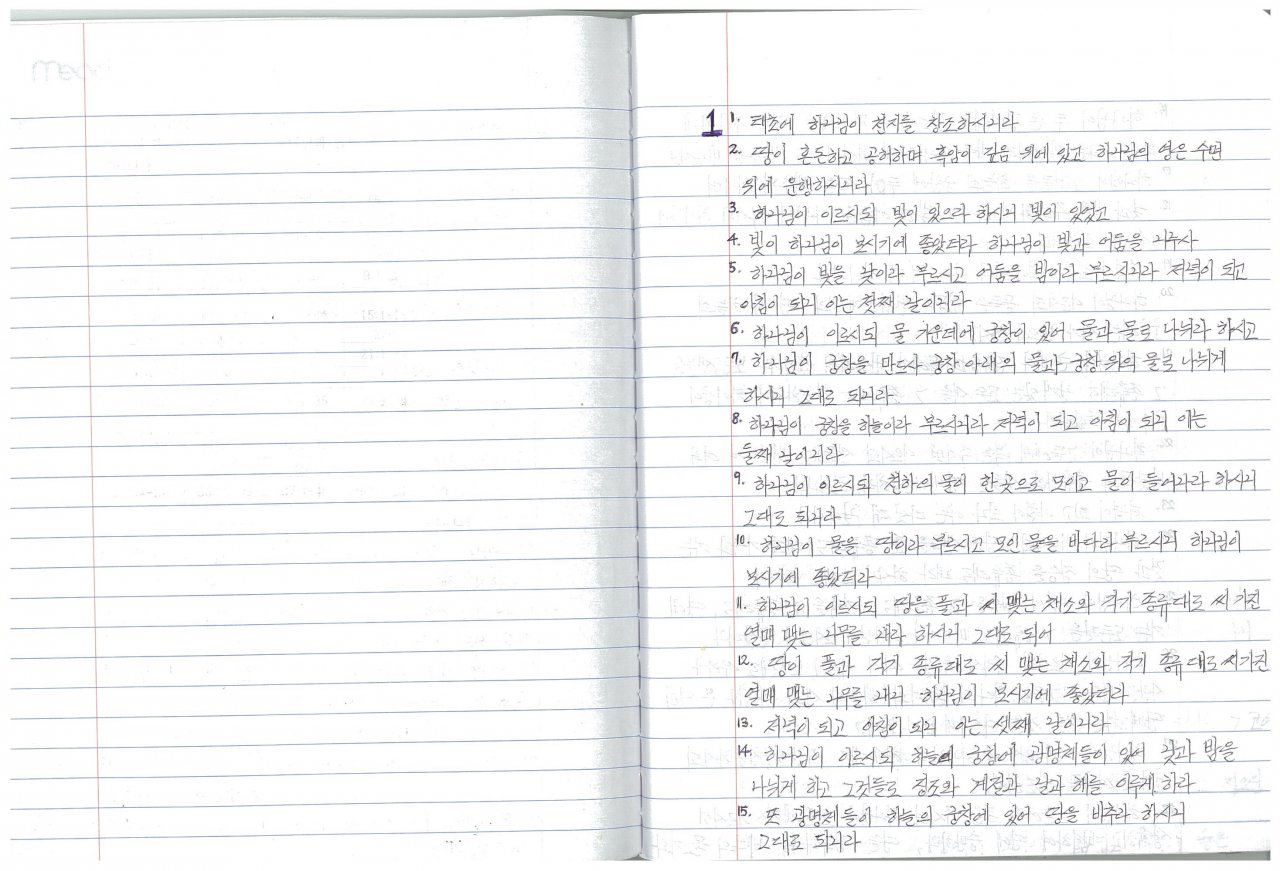 1 1. 태초에 하나님이 천지를 창조하시니라
2. 땅이 혼돈하고 공허하며 흑암이 깊음 위에 있고 하나님의 영은 수면
위에 운행하시니라
3. 하나님이 이르시되 빛이 있으라 하시니 빛이 있었고
4. 빛이 하나님이 보시기에 좋았더라, 하나님이 빛과 어둠을 나누사
5. 하나님이 빛을 낮이라 부르시고 어둠을 밤이라 부르시니라 저녁이 되고
아침이 되니 이는 첫째 날이니라
6. 하나님이 이르시되 물 가운데에 궁창이 있어 물과 물로 나뉘라 하시고
7. 하나님이 궁창을 만드사 궁창 아래의 물과 궁창 위의 물로 나뉘게
하시니 그대로 되니라
8. 하나님이 궁창을 하늘이라 부르시니라 저녁이 되고 아침이 되니 이는
둘째 날이니라
9. 하나님이 이르시되 천하의 물이 한 곳으로 모이고 물이 들어나라 하시니
그대로 되니라
10. 하나님이 물을 땅이라 부르시고 모인 물을 바다라 부르시니 하나님이
보시기에 좋았더라
11. 하나님이 이르시되 땅은 풀과 씨 맺는 채소와 각기 종류대로 씨 가진
열매 맺는 나무를 내라 하시니 그대로 되어
12. 땅이 풀과 각기 종류대로 씨 맺는 채소와 각기 종류대로 씨 가진
열매 맺는 나무를 내니 하나님이 보시기에 좋았더라
13. 저녁이 되고 아침이 되니 이는 셋째 날이니라
14. 하나님이 이르시되 하늘의 궁창에 광명체들이 있어 낮과 밤을
나뉘게 하고 그것들로 징조와 계절과 날과 해를 이루게 하라
15. 또 광명체들이 하늘의 궁창에 있어 땅을 비추라 하시니
그대로 되니라